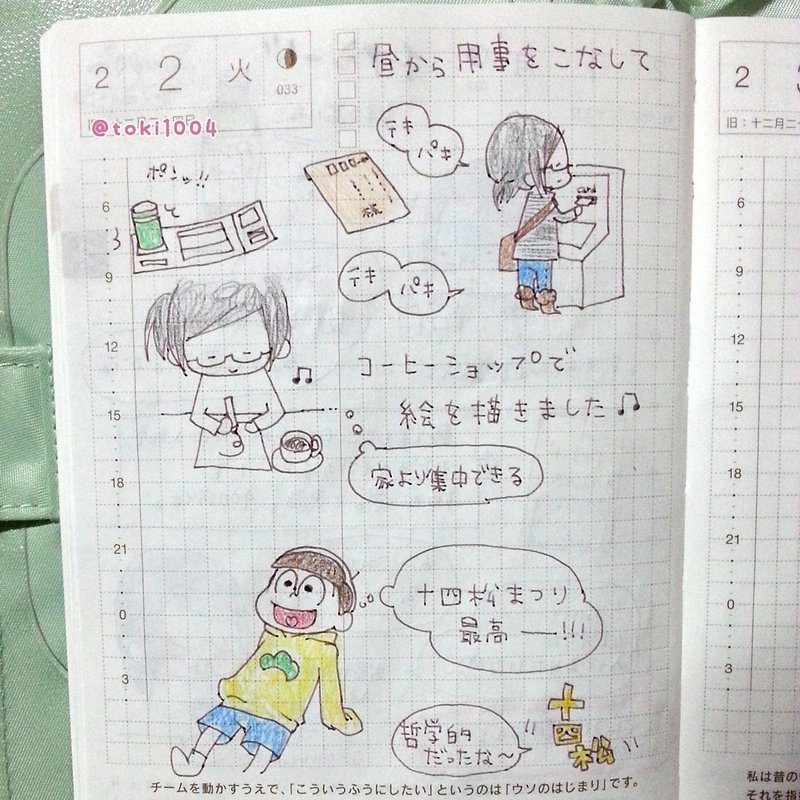 2 2 火
033
@toki1004
昼から用事をこなして
ポンッ!!
テキ
パキ
テキ
パキ
コーヒーショップで
絵を描きました♫
家より集中できる
十四松まつり
最高ー!!!
哲学的
だったな〜
十
四
松
6
9
12
15
18
21
0
3
チームを動かすうえで、「こういうふうにしたい」というのは「ウソのはじまり」です。
2
旧:十二月二
6
9
12
15
18
21
0
3
私は昔の
それを指